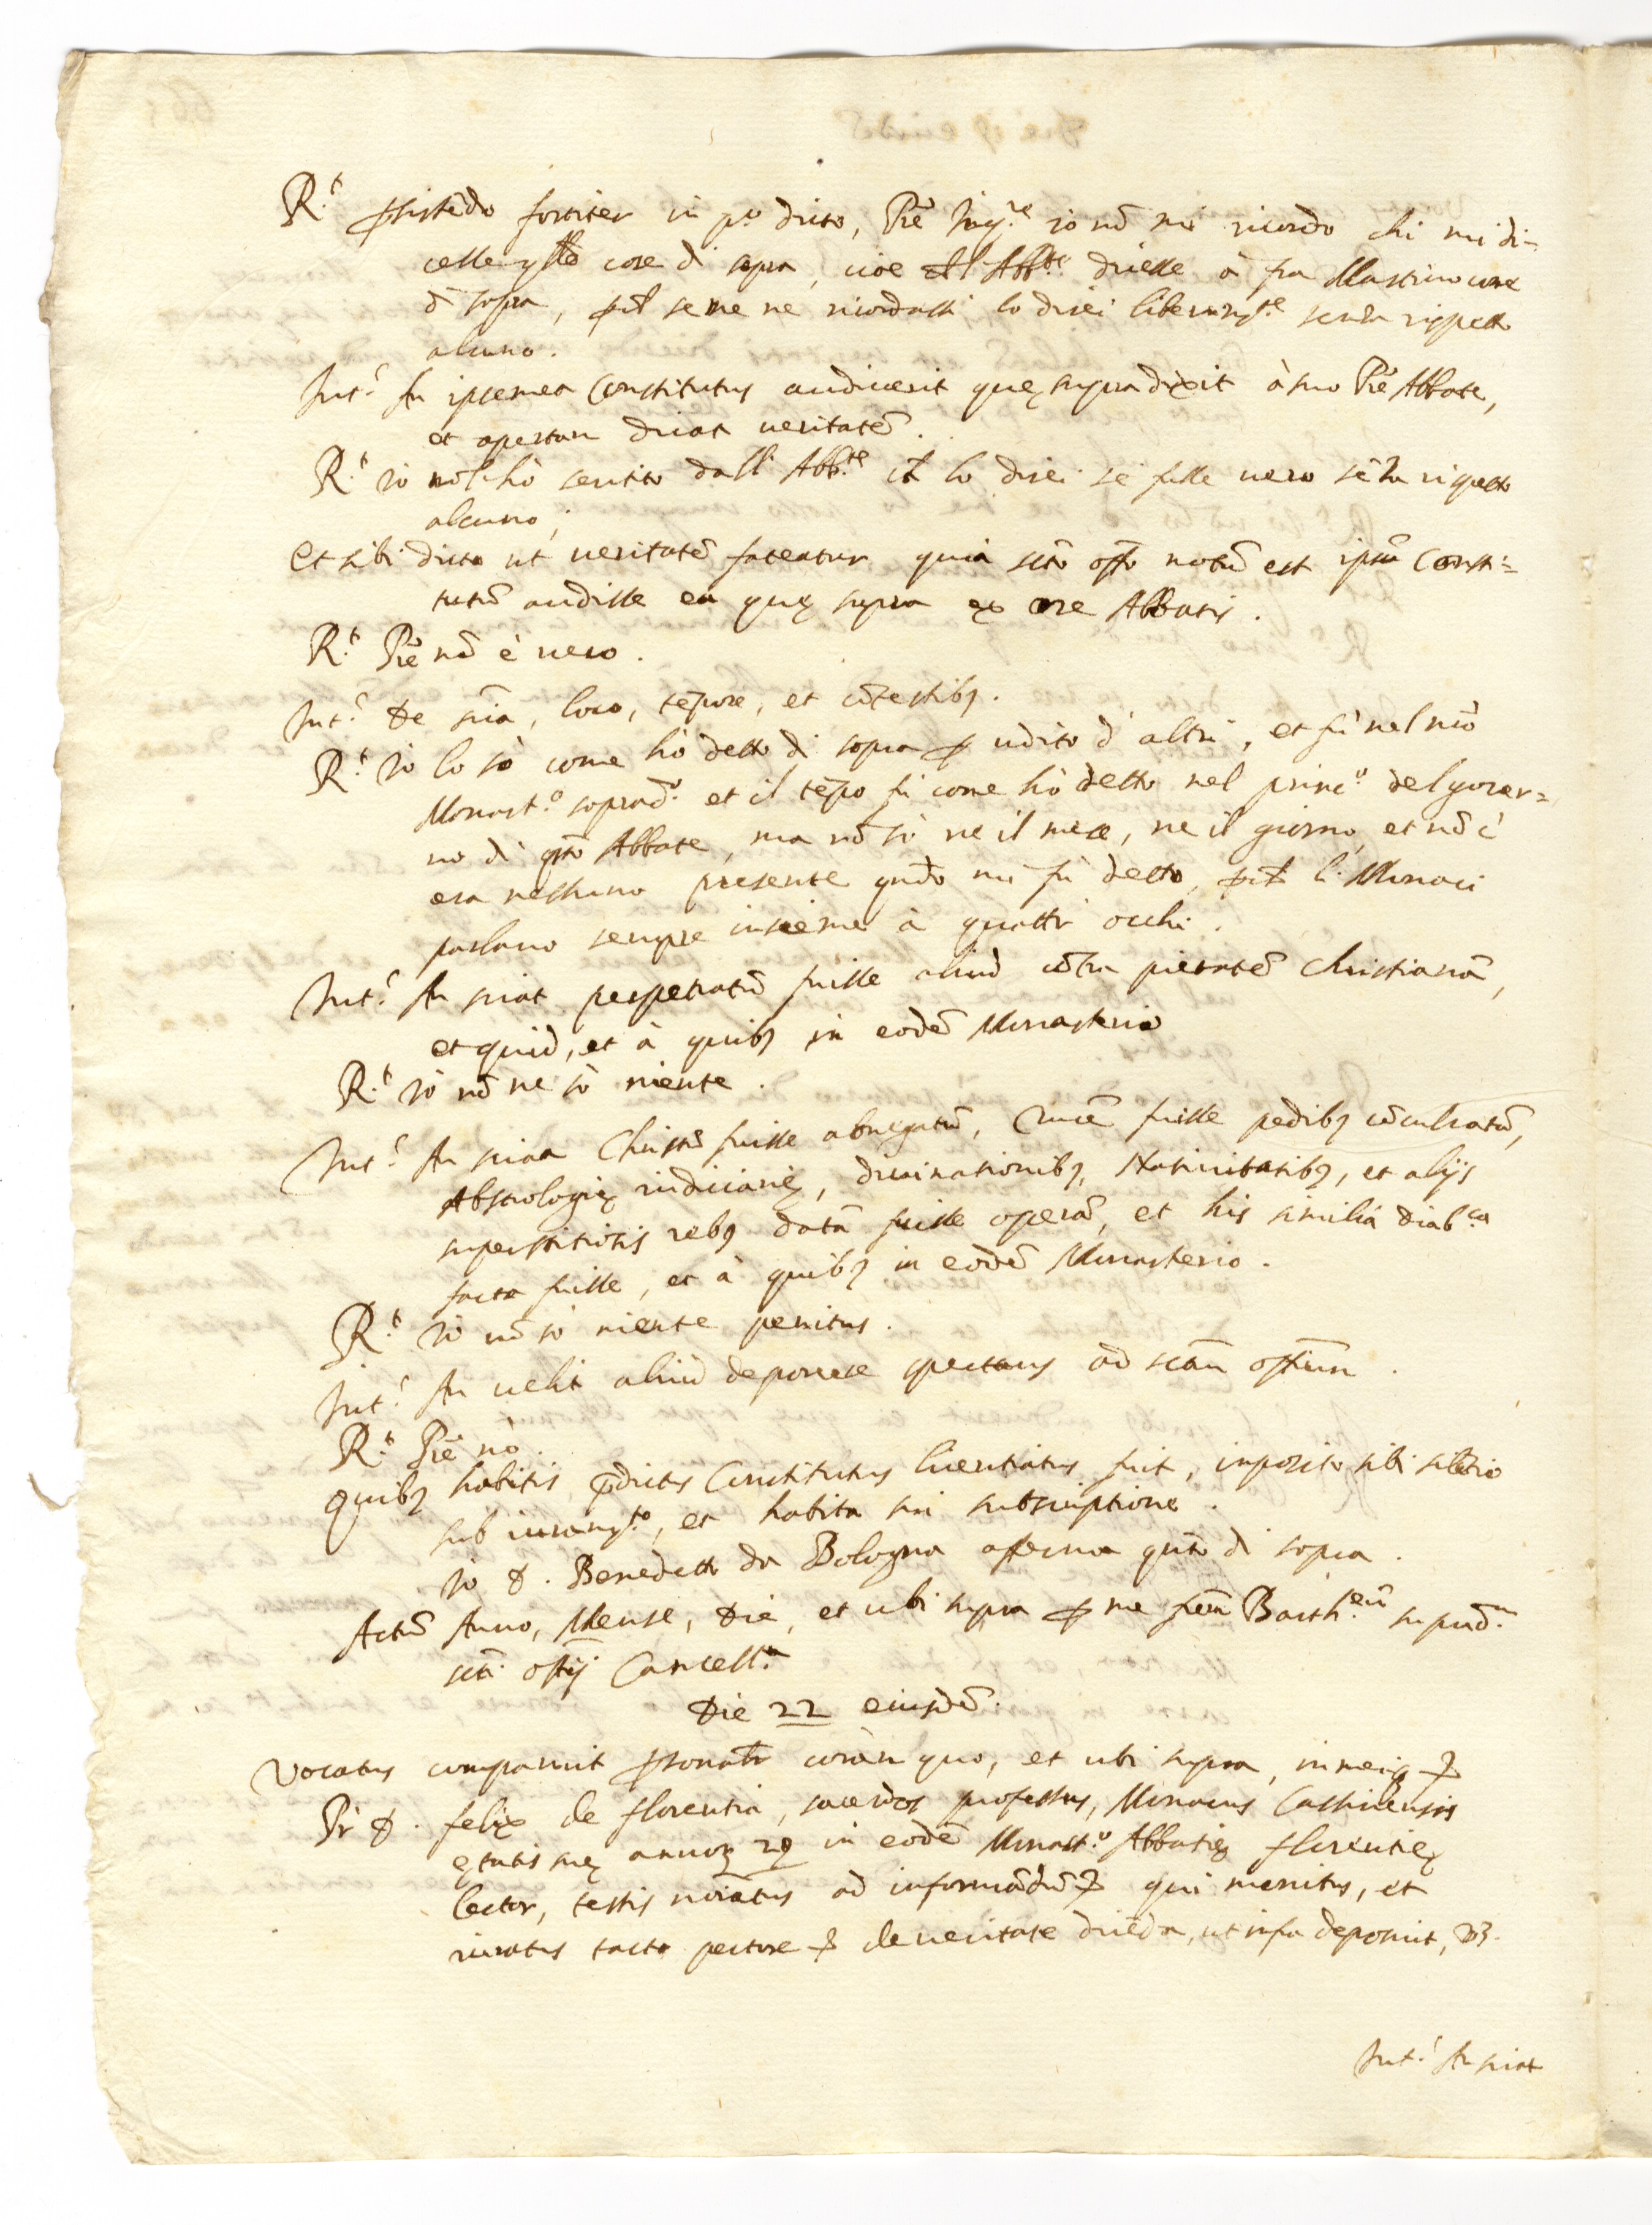 R.t psistẽdo fortiter in p.o dicto, Prẽ Inq.re io nõ mi ricordo chi mi di=
cesse qste cose di sopra, cioè Abb.te dicesse à fra Martino cose
d sopra, se me ne ricordassi lo direi liberam.te senza rispetto
alcuno.
Int.s An ipsemet Constitutus audiverit quę supradixit à suo Prẽ Abbate,
et apertam dicat veritatẽ.
R.t Iò nol hò sentito dall' Abb.te lo direi se fusse vero sẽza rispetto
alcuno;
Et sibi dicto ut veritatẽ fateatur quia scto offo notũ est ipsũ Consti=
tutũ audisse ea quę supra ex ore Abbatis.
R.t Prẽ nõ è vero.
Int.s De scĩa, loco, tẽpore, et cõtestibꝫ.
R.t Iò lo sò come hò detto di sopra p udito d' altri, et fù nel nrõ
Monast.o soprad.o et il tẽpo fù come hò detto nel princ.o del gover=
no di qsto Abbate, ma nõ sò ne il mese, ne il giorno, et nõ c'
era nessuno presente qñdo mi fù detto, li Monaci
parlano sempre insieme à quattr' occhi.
Int.s An sciat perpetratũ fuisse aliud cõtra pietatẽ Christianã,
et quid, et à quibꝫ in eodẽ Monasterio
R.t Iò nõ ne sò niente.
Int.s An sciat Christũ fuisse abnegatũ, Crucẽ fuisse pedibꝫ cõculcatũ,
Abstrologię iudiciarię, divinationibꝫ, Nativitatibꝫ, et alijs
superstitiosis rebꝫ datã fuisse operã, et his similia diab.ca
facta fuisse, et à quibꝫ in eodẽ Monasterio.
R.t Iò nõ sò niente penitus.
Int.s An velit aliud deponere spectans ad sctũm offium.
R.t Prẽ nò.
Quibꝫ habitis, pdictus Constitutus licentiatus fuit, imposito sibi silẽtio
sub iuram.to, et habita sui subscriptione.
Iò D. Benedetto da Bologna affermo qñto di sopra.
Actũ Anno, Mense, Die, et ubi supra p me frem Barth.eũ suprad.m
scti offij Cancell.m
Die 22 eiusdẽ.
Vocatus comparuit psonalr coràm quo, et ubi supra, in meiq &
Pr D. felix de florentia, sacerdos professus, Monacus Cassinensis
ętatis suę annoꝝ 29 in eodẽ Monast.o Abbatię florentię
lector, testis noĩatus ad informãdũ & qui monitus, et
iuratus tacto pectore & de veritate dicẽda, ut infra deposuit, Vꝫ.
Int.s An sciat